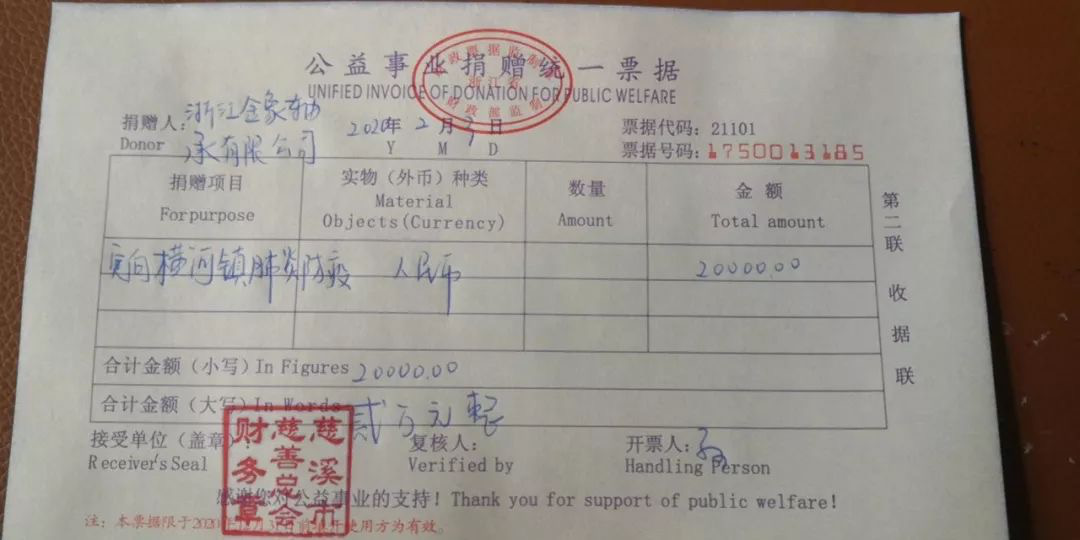 公益事业捐赠统一票据
UNIFIED INVOICE OF DONATION FOR PUBLIC WELFARE
浙江省
财政部监制
捐赠人：浙江金象轴承有限公司
Donor
2020年2月3日
Y M D
票据代码：21101
票据号码：1750013185
捐赠项目 实物（外币）种类 数量 金额
For purpose Material Objects(Currency) Amount Total amount
定向横河镇肺炎防疫 人民币 20000.00
合计金额（小写）In Figures 20000.00
合计金额（大写）In Words 贰万元整
接受单位（盖章）： 复核人： 开票人：
Receiver's Seal Verified by Handling Person
慈溪市慈善总会财务章
感谢您对公益事业的支持！Thank you for support of public welfare!
注：本票据限于2020年12月31日前填开使用方为有效。
第二联 收据联